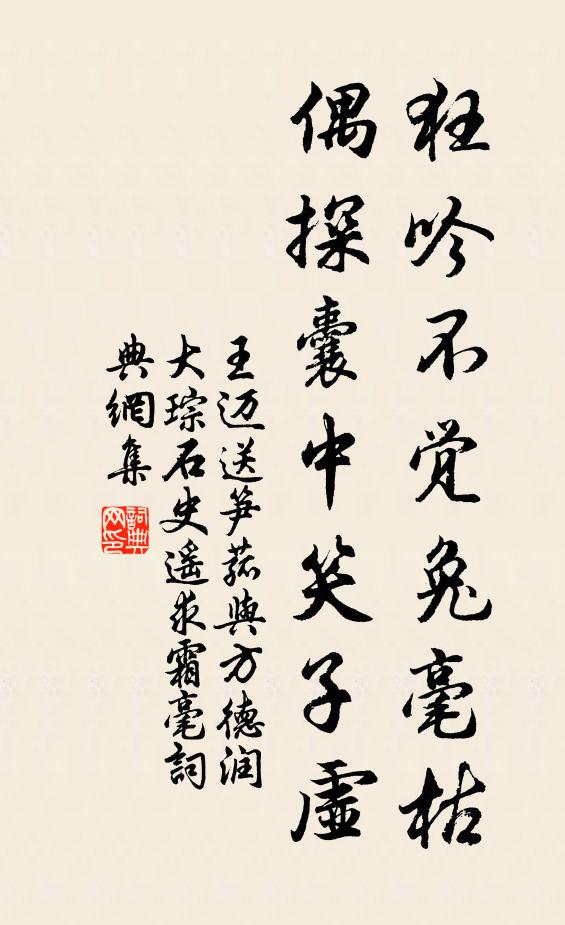 狂吟不觉兔毫枯
偶探囊中笑子虚
王迈送笋菰與方德润
大琮石史遥求霜毫詞
典網集
詞典
网印